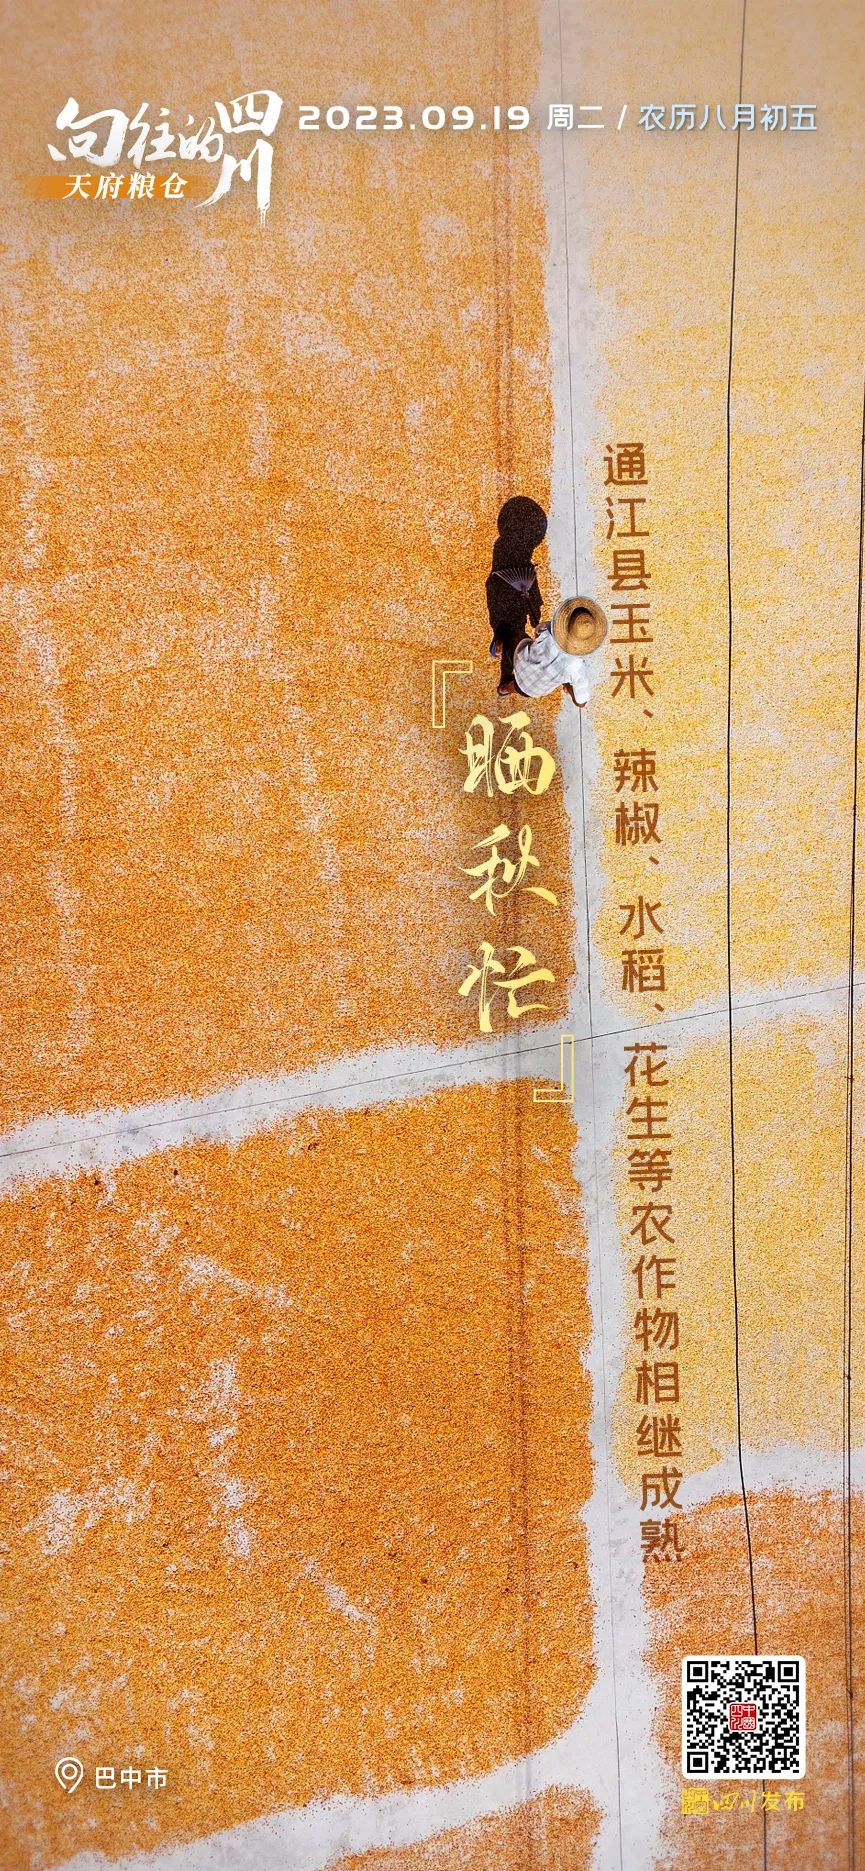 向往的四川
天府粮仓
2023.09.19 周二 / 农历八月初五
通江县玉米、辣椒、水稻、花生等农作物相继成熟
『晒秋忙』
巴中市
四川发布